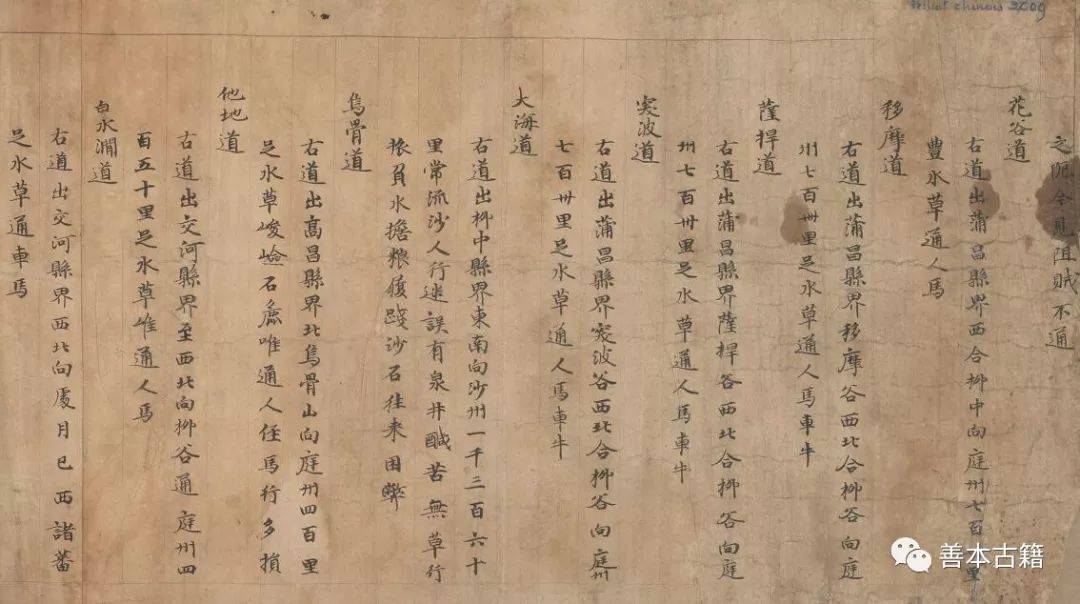 之阨今見阻賊不通
花谷道
右道出蒲昌縣界西合柳中向庭州七百里
豐水草通人馬
移摩道
右道出蒲昌縣界移摩谷西北合柳谷向庭
州七百卅里足水草通人馬車牛
薩捍道
右道出蒲昌縣界薩捍谷西北合柳谷向庭
州七百卅里足水草通人馬車牛
突波道
右道出蒲昌縣界突波谷西北合柳谷向庭州
七百卅里足水草通人馬車牛
大海道
右道出柳中縣界東南向沙州一千三百六十
里常流沙人行迷誤有泉井鹹苦無草行
旅負水擔粮履踐沙石往來困弊
烏骨道
右道出高昌縣界北烏骨山向庭州四百里
足水草峻嶮石麁唯通人徑馬行多損
他地道
右道出交河縣界至西北向柳谷通庭州四
百五十里足水草唯通人馬
白水澗道
右道出交河縣界西北向處月已西諸蕃
足水草通車馬
chinois 2009
善本古籍